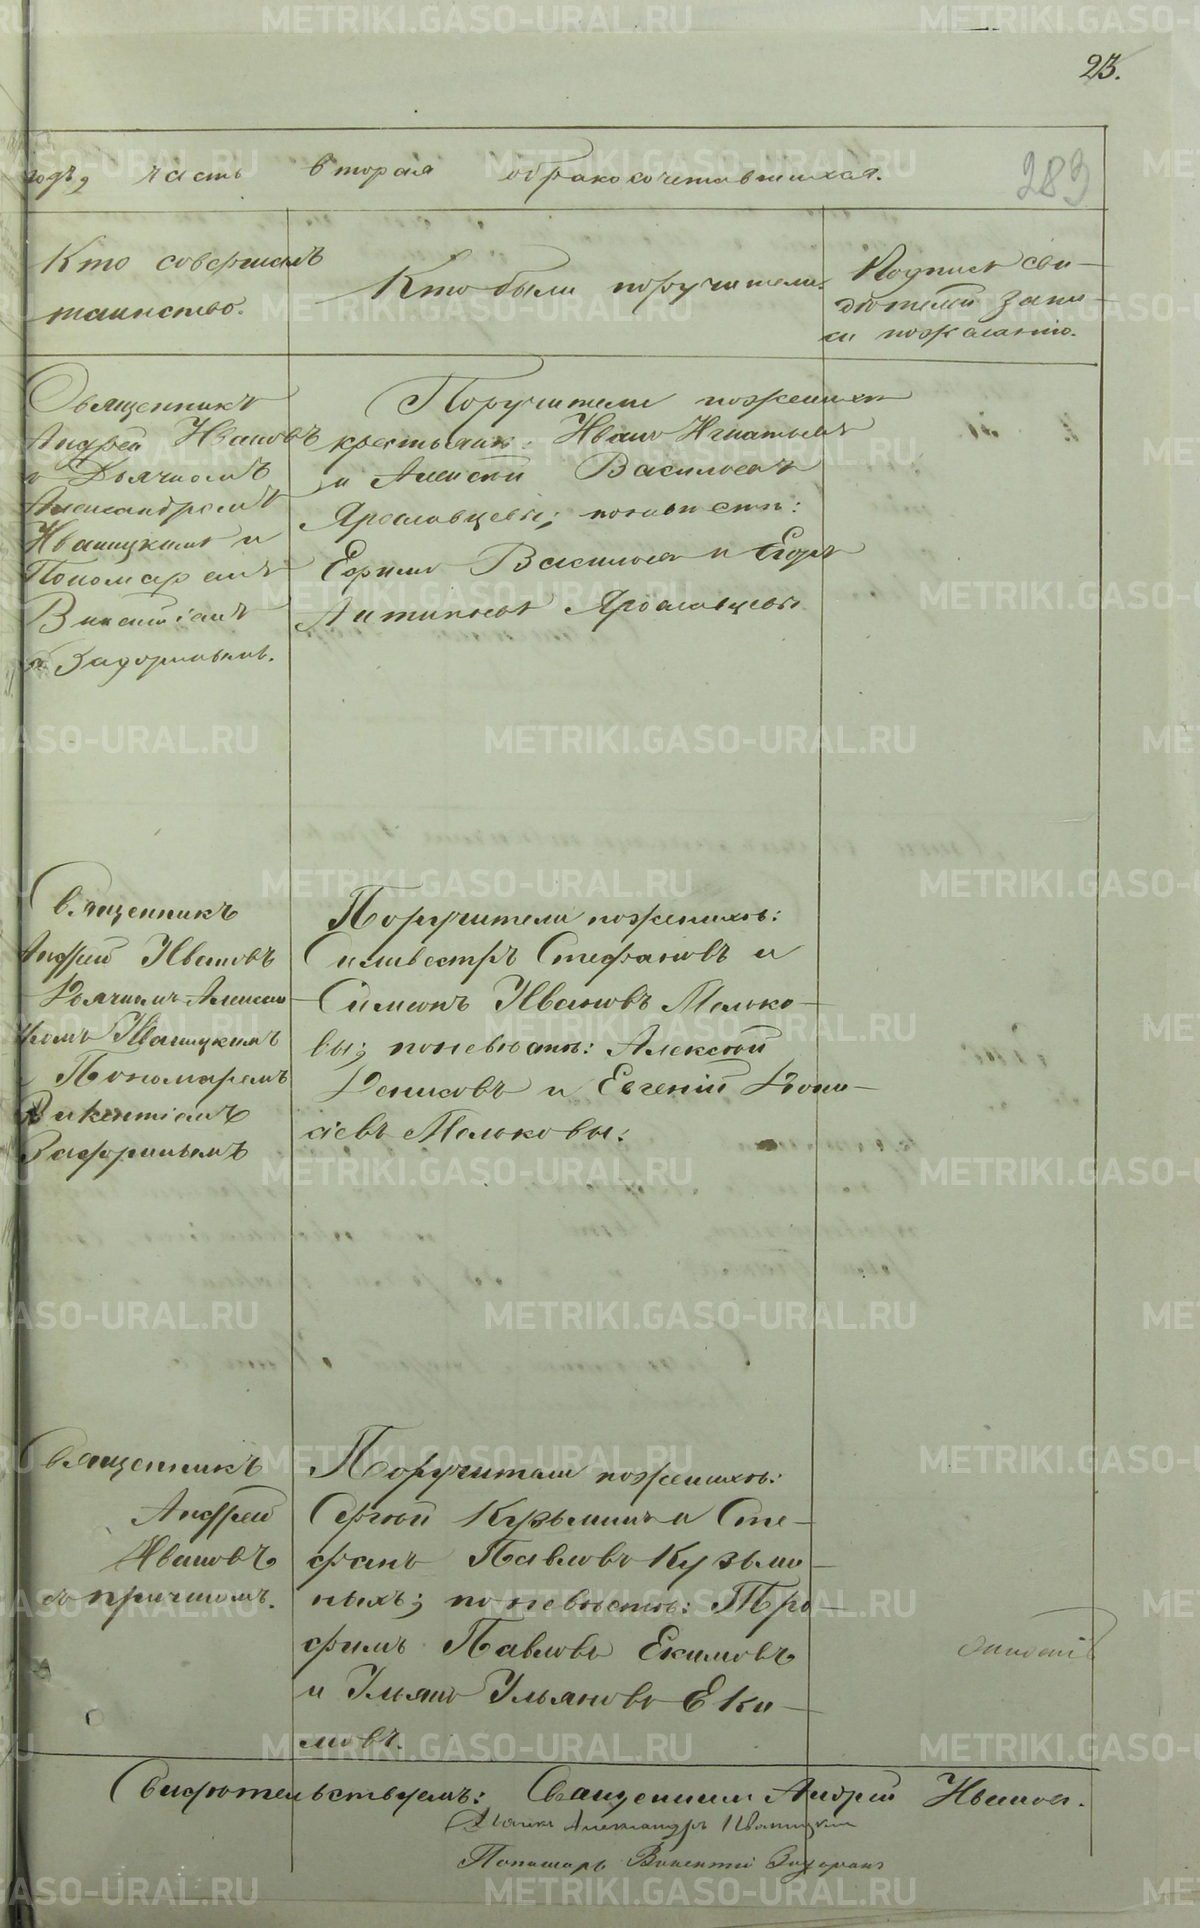 23.
годъ, часть вторая о бракосочетавшихся.
283
Кто совершалъ
таинство.
Кто были поручители.
Подписъ сви-
дѣтелей запи-
си по желанію.
Священникъ
Андрей Ивановъ
съ Дьячкомъ
Александромъ
Иваницкимъ и
Пономаремъ
Викентіемъ
Поручители по женихѣ
крестьяне: Иванъ Игнатьевъ
и Алексѣй Васильевъ
Ярославцевы; по невѣстѣ:
Ефимъ Васильевъ и Егоръ
Антипьевъ Ярославцевы
Священникъ
Андрей Ивановъ
Дьячкомъ Алексан-
дромъ Иваницкимъ
Пономаремъ
Викентіемъ
Поручители по женихѣ:
Сильвестръ Стефановъ и
Симеонъ Ивановъ Малько-
вы; по невѣстѣ: Алексѣй
Денисовъ и Евгеній Дони-
сіевъ Мальковы:
Священникъ
Андрей
Ивановъ
съ причтомъ.
Поручители по женихѣ:
Сергѣй Кузьминъ и Сте-
фанъ Павловъ Кузьми-
ныхъ; по невѣстѣ: Тро-
фимъ Павловъ Екимовъ
и Ульянъ Ульяновъ Еки-
мовъ.
Свидѣтельствуемъ: Священникъ Андрей Ивановъ.
Дьячекъ Александръ Иваницкій
Пономарь Викентій
METRIKI.GASO-URAL.RU